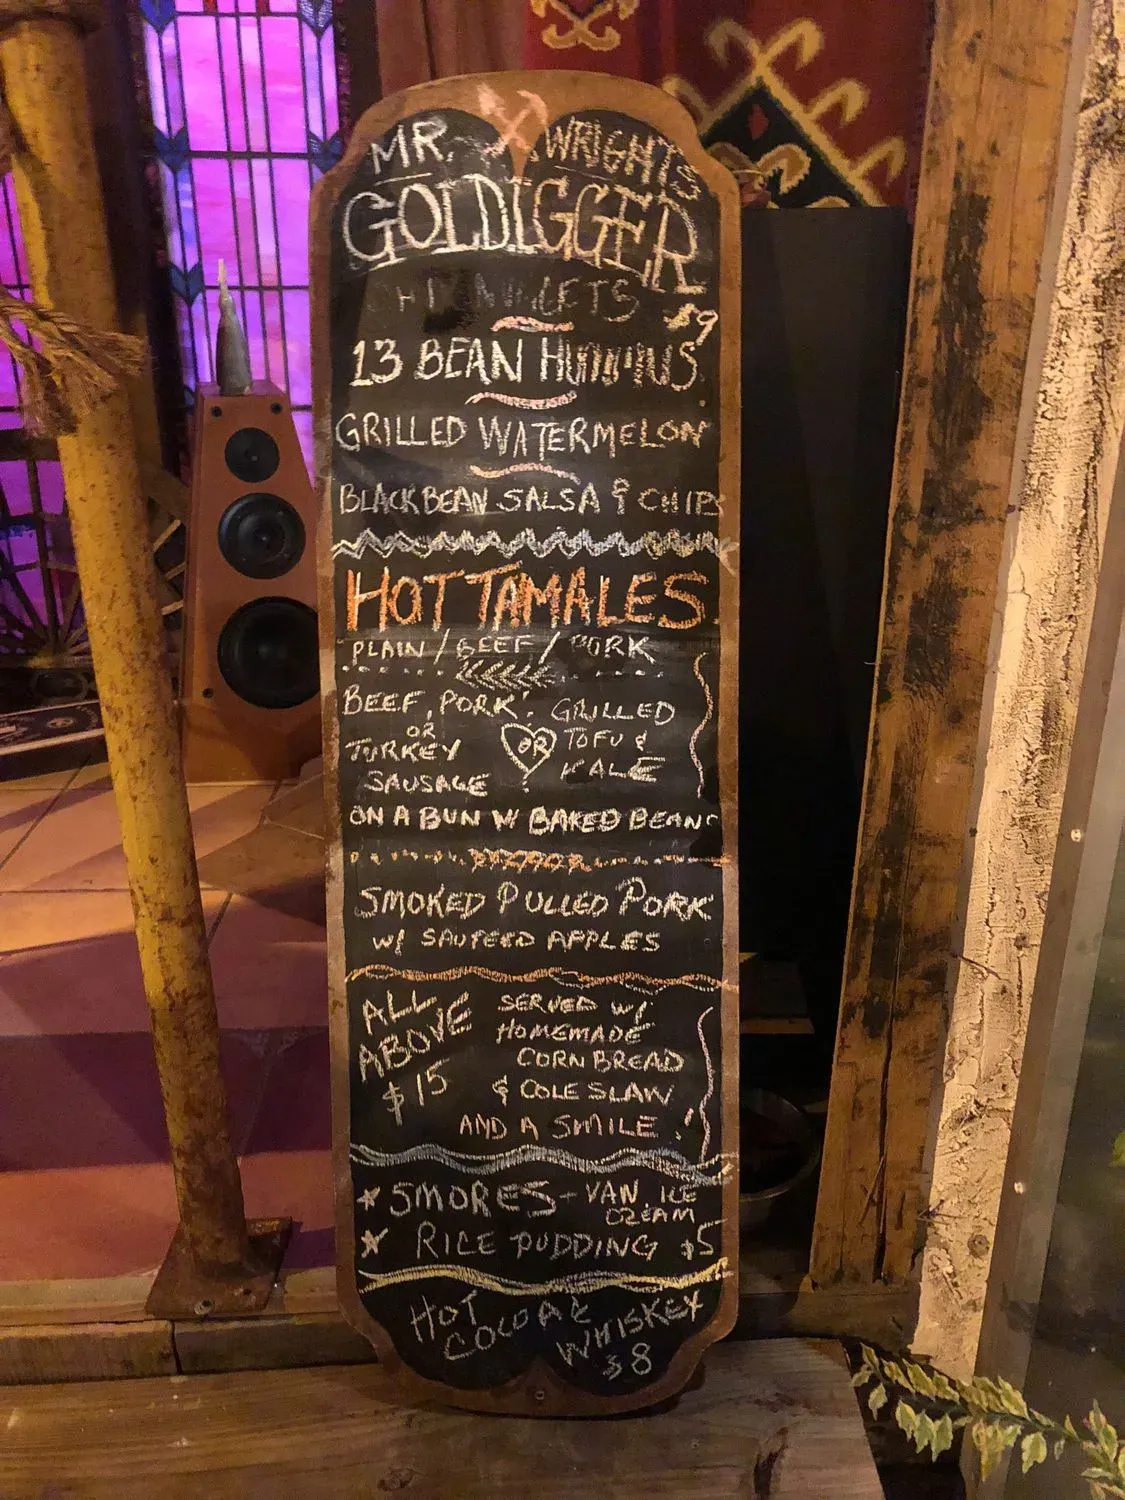 MR. WRIGHTS
GOLDIGGER
$9
13 BEAN HUMMUS
GRILLED WATERMELON
BLACKBEAN SALSA & CHIPS
HOT TAMALES
PLAIN / BEEF / PORK
BEEF, PORK,
OR
TURKEY
SAUSAGE
OR
GRILLED
TOFU &
KALE
ON A BUN W BAKED BEANS
SMOKED PULLED PORK
W/ SAUTEED APPLES
ALL
ABOVE
$15
SERVED W/
HOMEMADE
CORN BREAD
& COLE SLAW
AND A SMILE!
SMORES - VAN. ICE
CREAM
RICE PUDDING $5
HOT
COCOA &
WHISKEY
$8